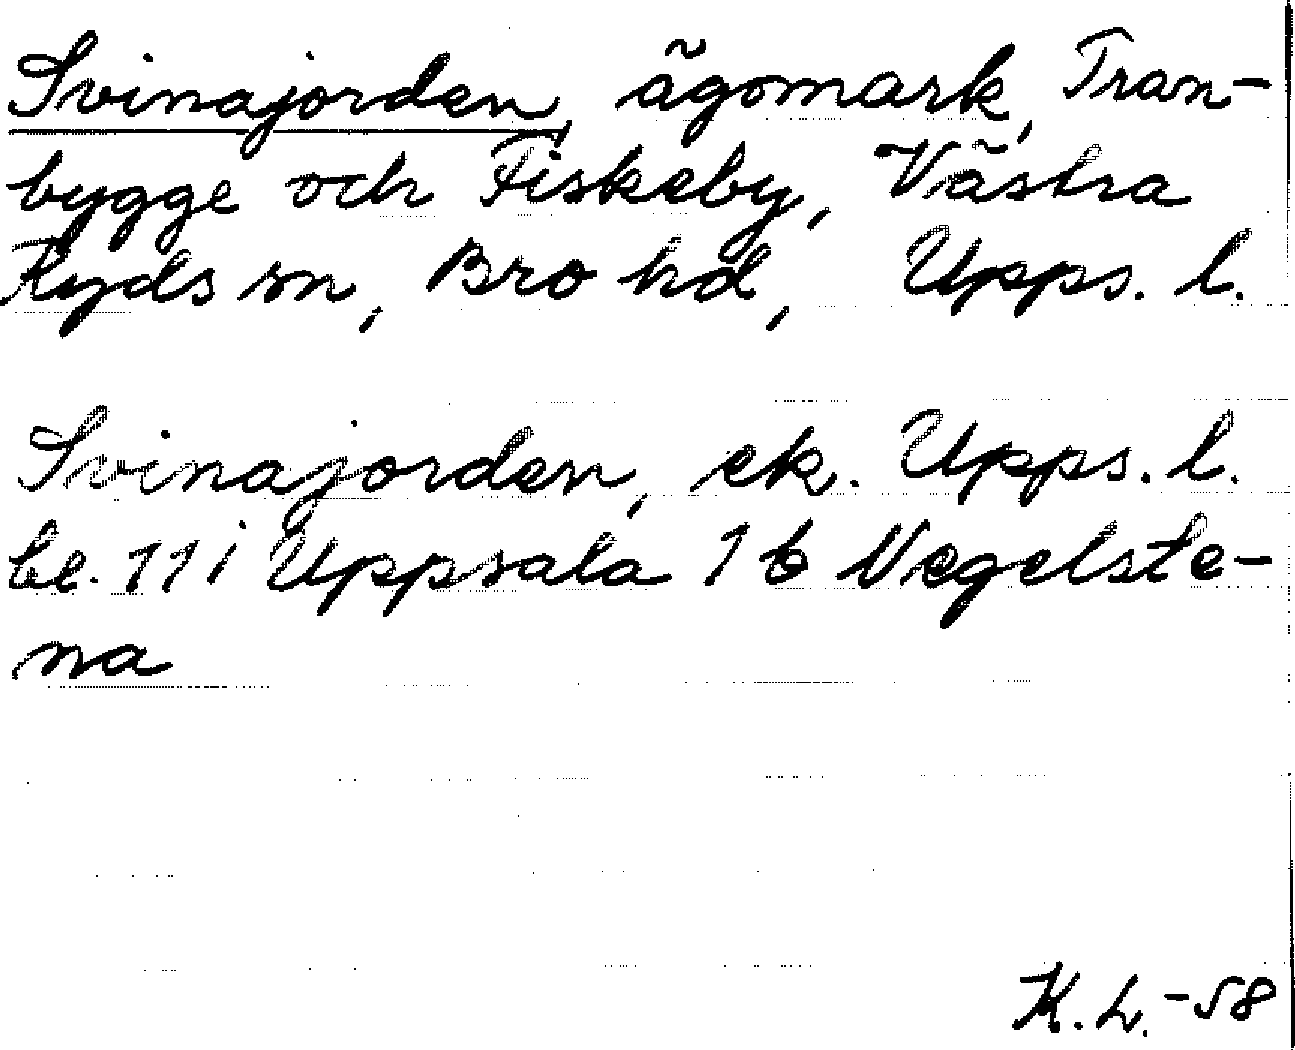 Svinajorden, ägomark, Tran-
bygge och Fiskeby, Västra
Ryds sn, Bro hd, Upps. l.
Svinajorden, ek. Upps. l.
bl. 11 i Uppsala 1 b Negelste-
na
K. L. -58